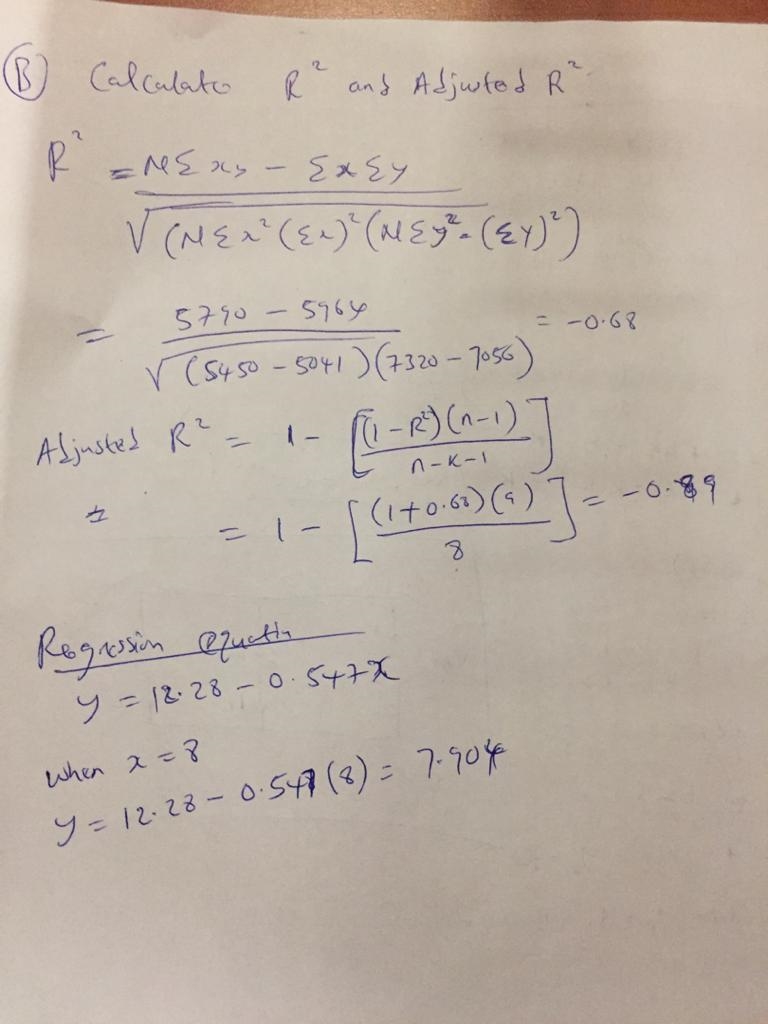 B Calculate R² and Adjusted R²
R² = NΣxy - ΣxΣy
√(NΣx²(Σx)²(NΣy²-(Σy)²)
= 5790 - 5964
√(5450-5041)(7320-7056) = -0.68
Adjusted R² = 1 - [(1-R²)(n-1)]
n-k-1
= 1 - [(1+0.68)(9)] = -0.89
8
Regression equatin
y = 12.28 - 0.547x
when x = 8
y = 12.28 - 0.547(8) = 7.904